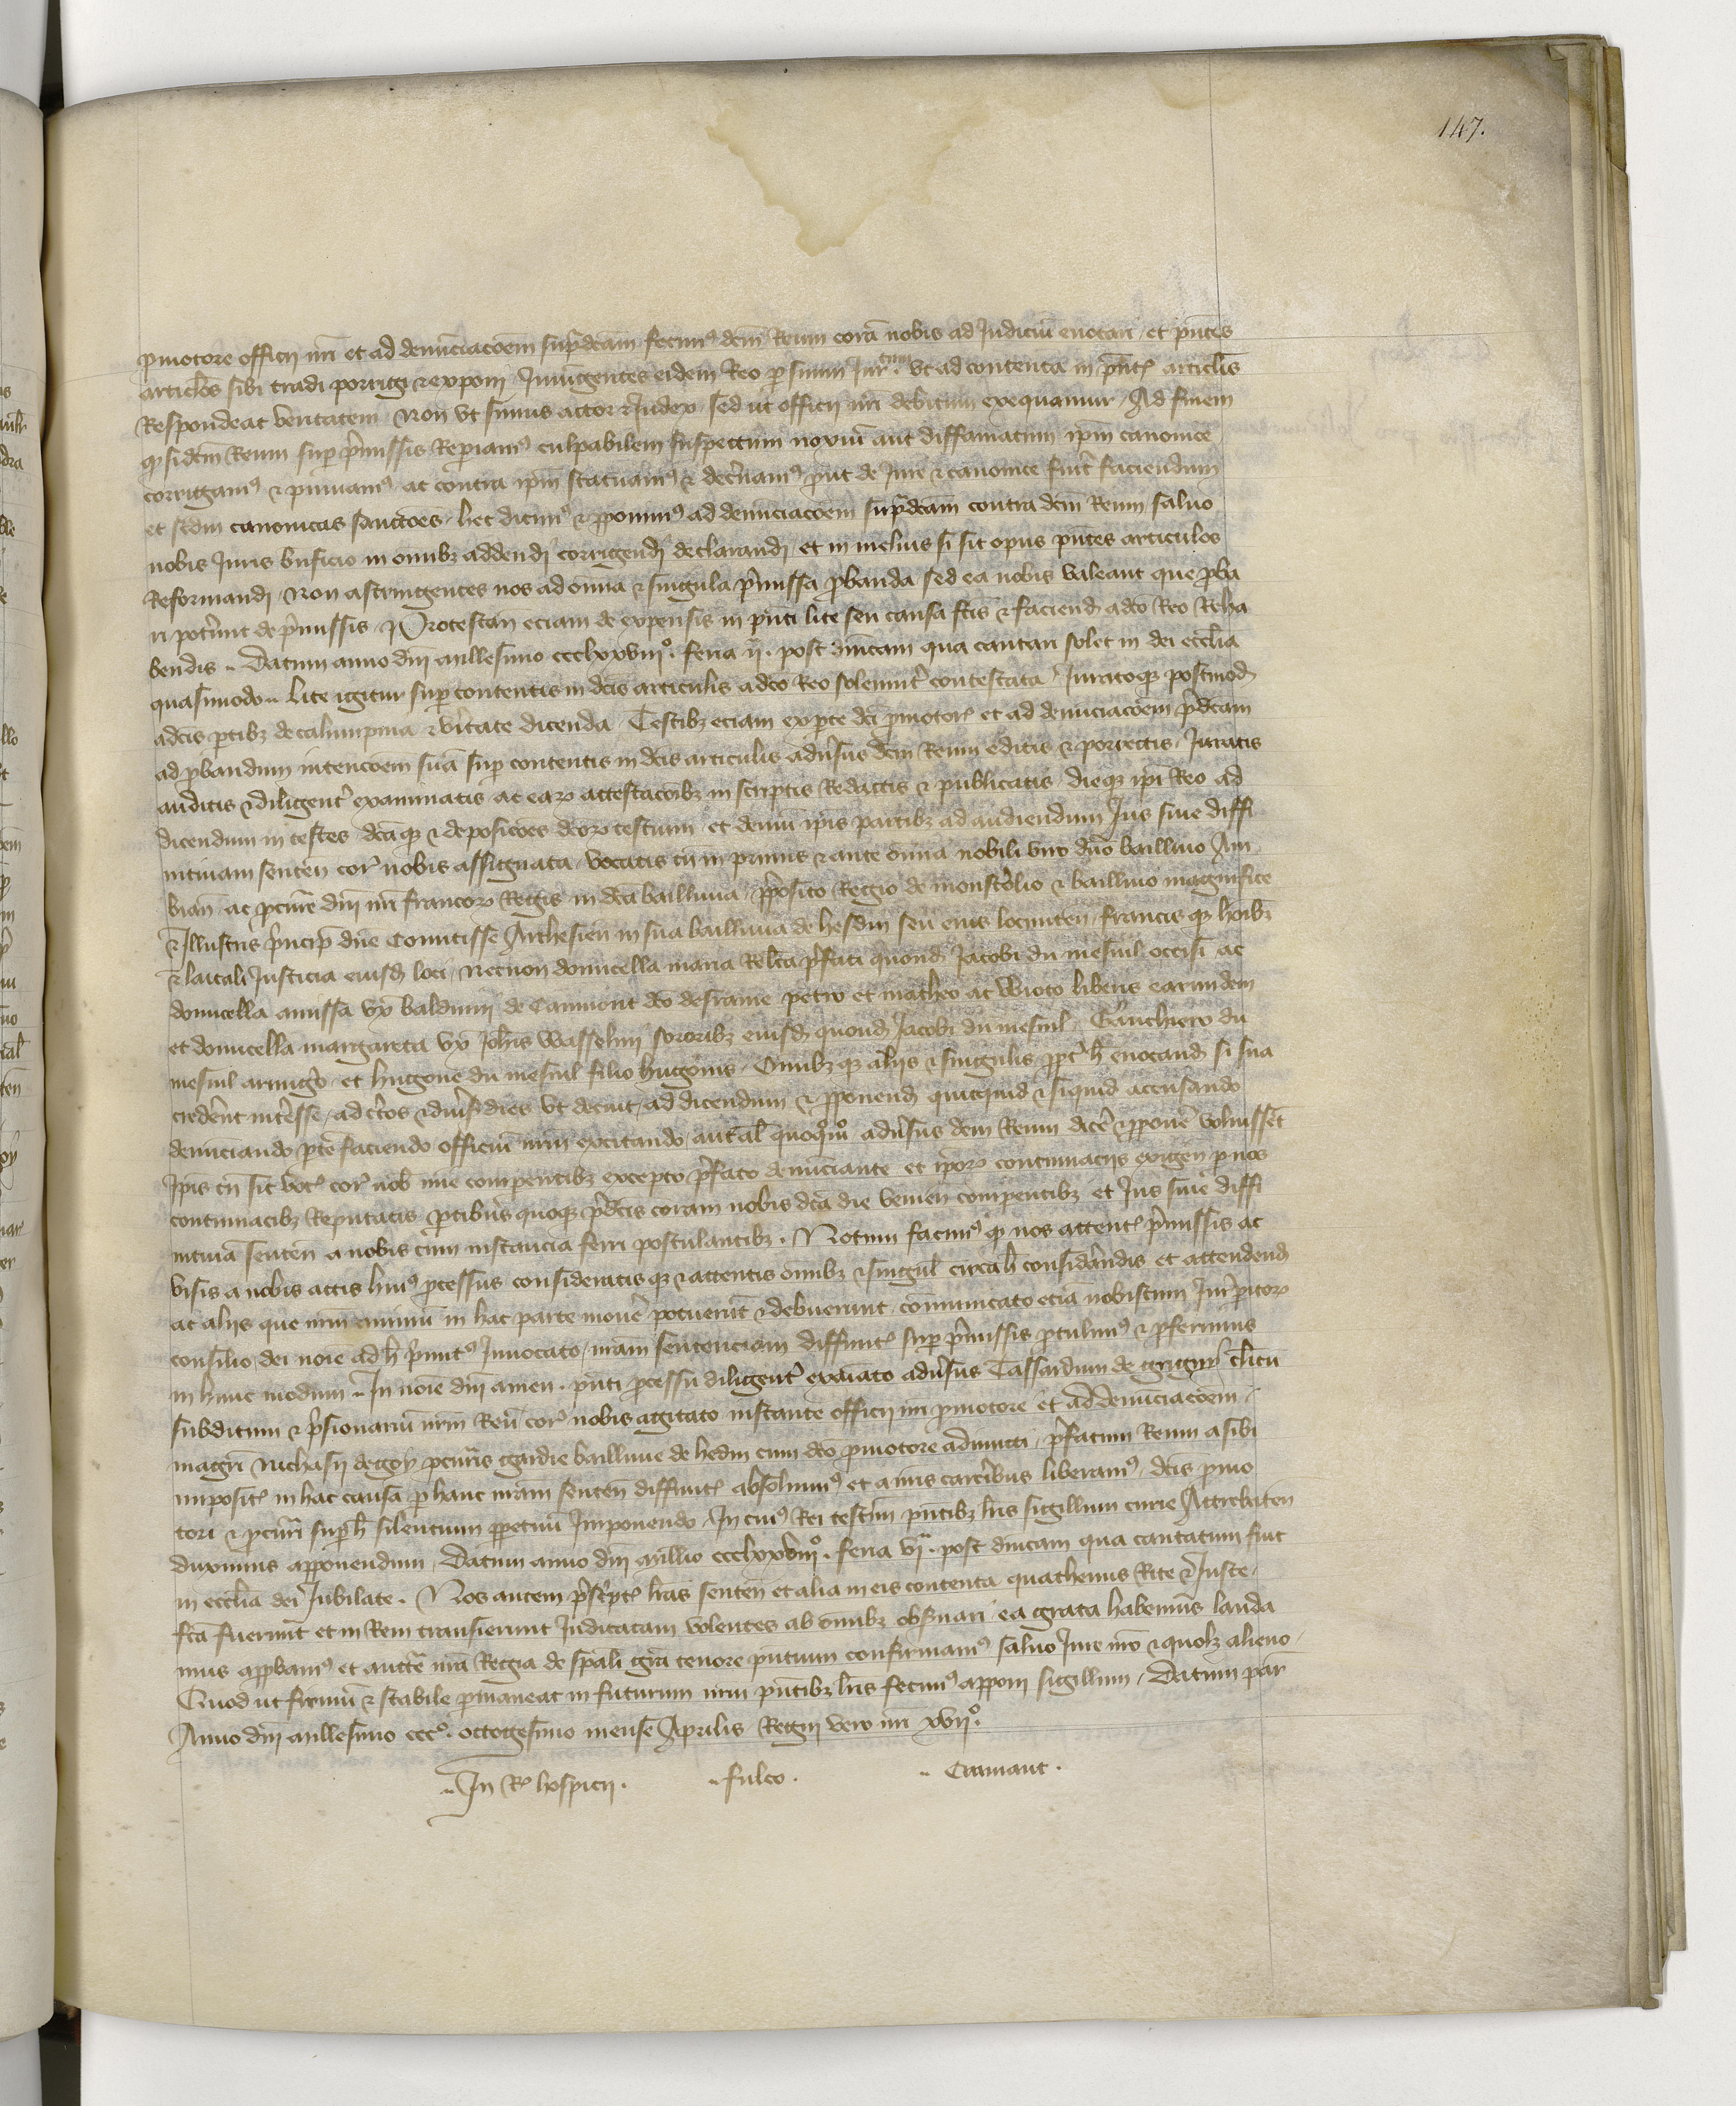 147.
pmotore officij nri et ad denunciacoem supdcam fecim9 dcm Reum corā nobis ad Judiciū euocari et pntes
articlos sibi tradi porrigi & exponi Iniungentes eidem Reo p suum Jurtum. vt ad contenta in pntꝭ articlis
Respondeat veritatem Non vt simus actor & Judex sed ut officij nri debitum exequamur Ad finem
qꝫ si dcm Reum sup pmissis Repiam9 culpabilem suspectum noxiū aut diffamatum ipm canonice
corrigam9 & puniam9 ac contra ipm statuam9 & decnam9 put de Jure & canonice fuit faciendum
et scdm canonicas sanctoes hec dicim9 & pponim9 ad denunciacoem supdcam contra dcm Reum saluo
nobis Juris bnficio in omibꝫ addendi corrigendi declarandi et in melius si sit opus pntes articulos
Reformandi Non astringentes nos ad omia & singula pmissa pbanda sed ea nobis valeant que pba
ri potunt de pmissis Protestan eciam de expensis in pnti lite seu causa fcis & faciend adco Reo Reha
bendis .. Datum anno dni millesimo ccclxxviiio. feria ija. post dnicam qua cantari solet in dei ecclia
quasimodo .. lite igitur sup contentis in dcis articulis adco Reo solemnit contestata Juratoqꝫ postmod
adcis ptibꝫ de calumpnia & vitate dicenda Testibꝫ eciam ex pte dci pmotorꝭ et ad denunciacoem pdcam
ad pbandum intencoem suā sup contentis in dcis articulis adusus dcm Reum editis & porrectis Juratis
auditis & diligent examinatis ac eaꝝ attestacoibꝫ in scriptis Redactis & publicatis dieqꝫ ipi Reo ad
dicendum in testes dcaqꝫ & deposicoes dcoꝝ testium et demū ipis partibꝫ ad audiendum Jus siue diffi
nitiuam senten cor nobis assignata vocatis tn in primis & ante omia nobili viro dno balliuo Am
bian ac pcure dni nri francoꝝ Regis in dca balliuia pposito Regio de monstolio & balliuo magnifice
& Illustris principꝭ dne Comitisse Arthesien in sua balliuia de hesdin seu eius locumten francis qꝫ hoibꝫ
& laicali Justicia eiusd loci necnon domicella maria Relcta pfati quond Jacobi du mesnil occisi ac
domicella auissa vx balduini de Caumont dco desrame petro et matheo ac Wioto liberis earundem
et domicella margareta vx Johis Wasselini sororibꝫ eiusd quond Jacobi du mesnil Gauchiero du
mesnil armigo et hugone du mesnil filio hugonis Omibꝫ qꝫ alijs & singulis ppt h euocand si sua
credent intesse ad ctos & diusos dies vt decuit ad dicendum & pponend quicquid & siquid accusando
denunciando pte faciendo officiū nrm excitando aut al quoqmo adusus dcm Reum dice & pponē voluissēt
Ipis tn sic vocꝭ cor nob mie compentibꝫ excepto pfato denunciante et ipoꝝ contumacijs exigen p nos
contumacibꝫ Reputatis ptibus quoqꝫ pdcis coram nobis dca die venien compentibꝫ et Jus siue diffi
nitiuā senten a nobis cum instancia ferri postulantibꝫ . Notum facim9 qꝫ nos attentꝭ pmissis ac
visis a nobis actis hui9 pcessus consideratis qꝫ & attentis omibꝫ & singul circa h considandis et attendend
ac alijs que nrm animū in hac parte mouē potuerūt & debuerunt communicato eciā nobiscum Jur pitoꝝ
consilio dei noie ad h pmit9 Inuocato nram sentenciam diffinitꝭ sup pmissis ptulim9 & pferimus
in hunc modum .. In noie dni amen . pnti pcessu diligent exaiato adusus Tassardum de grigny clicū
subditum & prsionariū nrm Reū cor nobis agitato instante officij nri pmotore et ad denunciacoem
magri nichasij degoy pcuris gardie balliuie de hedin cum dco pmotore adiuncti pfatum Reum asibi
impositꝭ in hac causa p hanc nram senten diffinitꝭ absoluim9 et anris carcibus liberam9 dcis pmo
tori & pcuri sup h silentium ppetuū Imponendo In cui9 Rei testim pntibꝫ lris sigillum curie Attrebaten
duximus apponendum Datum anno dni millio ccclxxviiio . feria via . post dnicam qua cantatum fuit
in ecclia dei Jubilate . Nos autem pscriptꝭ lras senten et alia in eis contenta quathenus Rite & Juste
fca fuerint et in Rem transierunt Judicatam volentes ab omibꝫ obsuari ea grata habemus lauda
mus appbam9 et aucte nra Regia de spali gra tenore pntium confirmam9 saluo Jure nro & quolꝫ alieno
Quod ut firmū & stabile pmaneat in futurum nrm pntibꝫ lris fecim9 apponi sigillum Datum par
Anno dni millesimo ccco. octogesimo mense Aprilis Regni vero nri xvijo.
.. In Rꝭ hospicij . .. fulco . .. Cramant .